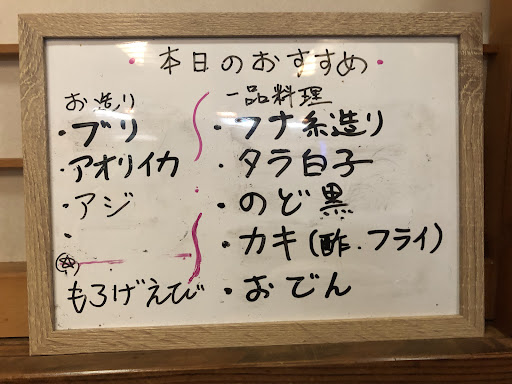 ・本日のおすすめ・
お造り
・ブリ
・アオリイカ
・アジ
・
もろげえび
一品料理
・フナ糸造り
・タラ白子
・のど黒
・カキ(酢.フライ)
・おでん